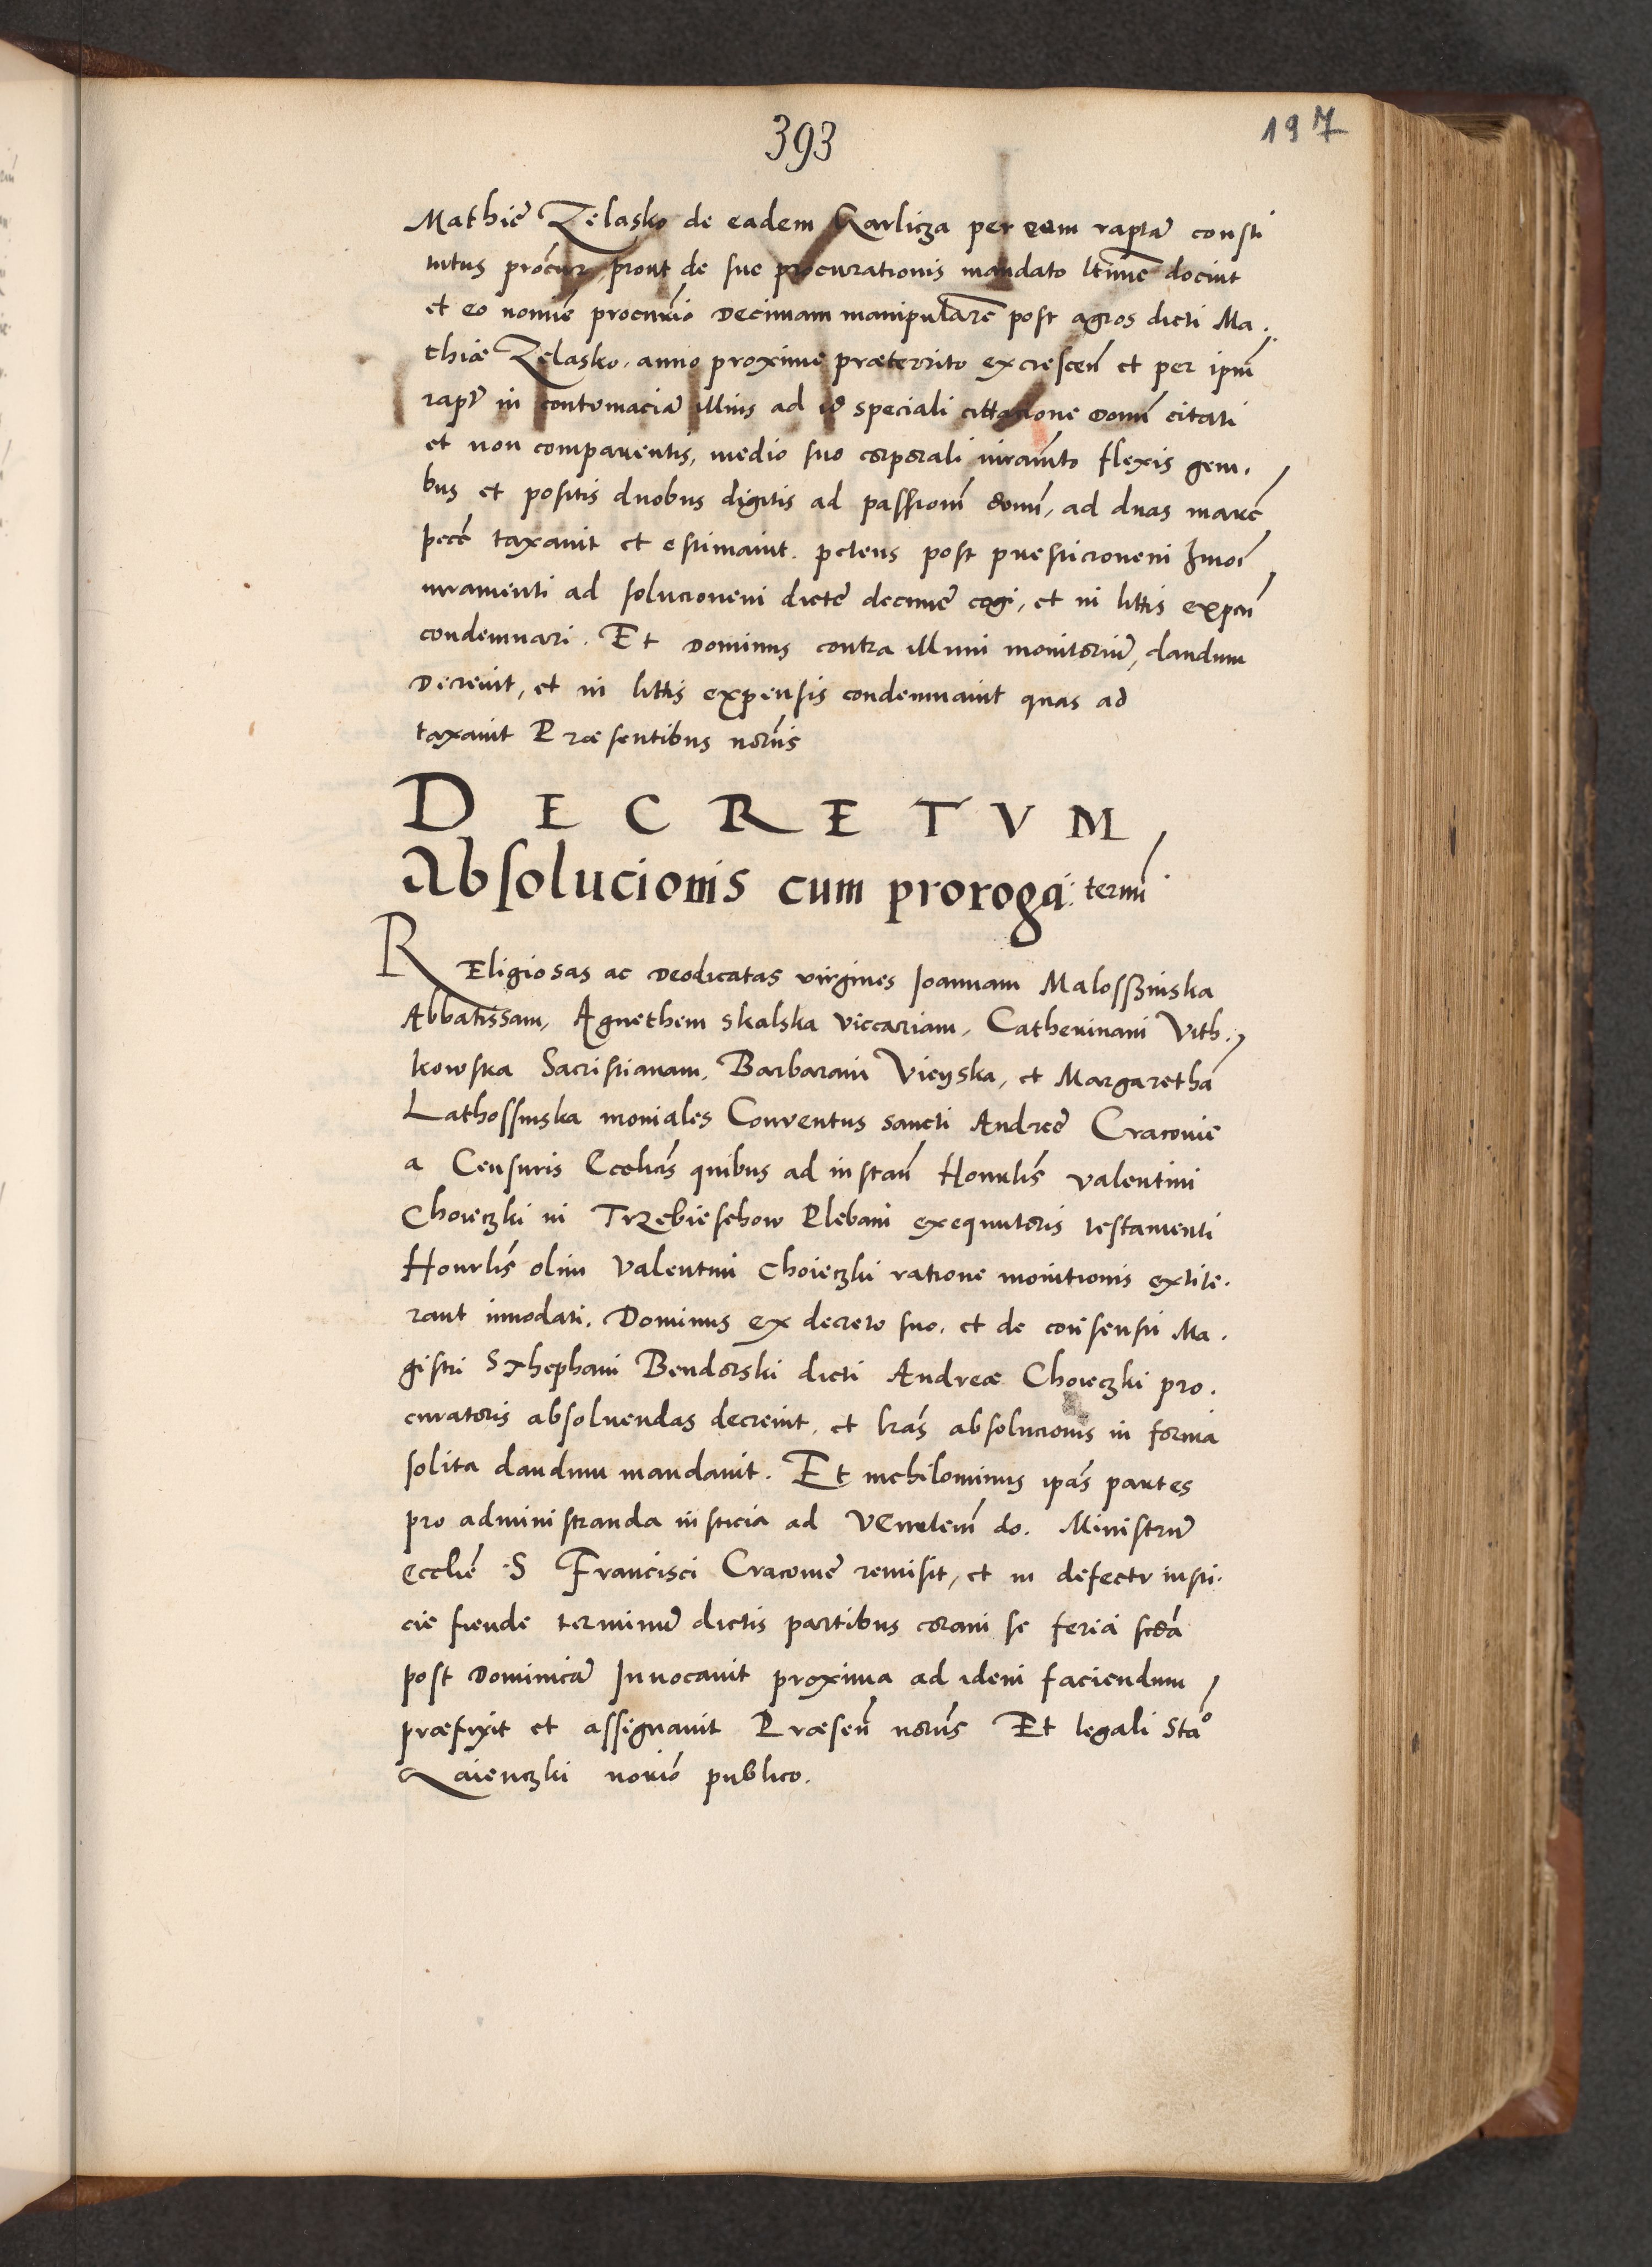 393
197
Mathiē Zelasko de eadem Karlicza per eum raptā consti
tutus procur, prout de sue procurationis mandato ltimē docuit
et eo nomīe procurio Decimam manipularē post agros dicti Ma.
thiæ Zelasko. anno proxime præterito excrescēn et per ipm̄
rapt in contumaciā illius ad id speciali cittacione Domī citati
et non comparentis, medio suo corporali iuramto flexis geni.
bus et positis duobus digitis ad passionī domī, ad duas marc
pecē taxauit et estimauit. petens post præsticionem hmoi
iuramenti ad solucionem dictē decimē cogi, et in littis expeñ
condemnari. Et Dominus contra illum monitoriū, dandum
Decreuit, et in littis expensis condemnauit quas ad
taxauit Præsentibus noriis
DECRETVM
Absolucionis cum proroga: termī
REligiosas ac Deodicatas virgines Joannam Malosszinska
Abbatissam, Agnethem Skalska viccariam, Catherinam Vith.
kowska Sacristianam, Barbaram Vieyska, et Margarethā
Lathossinska moniales Conventus sancti Andreē Cracouie
a Censuris Ecclicis quibus ad instan̄ Honrlis valentini
Choieczki in Trzebieschow Plebani exequutoris testamenti
Honrlis olim Valentini Choieczki ratione monitionis extite.
rant innodati. Dominus ex decreto suo. et de consensu Ma.
gistri Sthephani Bendorski dicti Andreæ Choieczki pro.
curatoris absoluendas decreuit, et lras absolucionis in forma
solita dandum mandauit. Et nichilominus ipas partes
pro administranda iusticia ad VEnrlem do. Ministrū
Ecclie .S Francisci Cracouiē remisit, et in defectu iusti.
cie fiende terminū dictis partibus coram se feria scda
post Dominicā Inuocauit proxima ad idem faciendum
præfixit et assignauit Præsen̄ noriis Et legali Stao
Zaienczki norio publico.